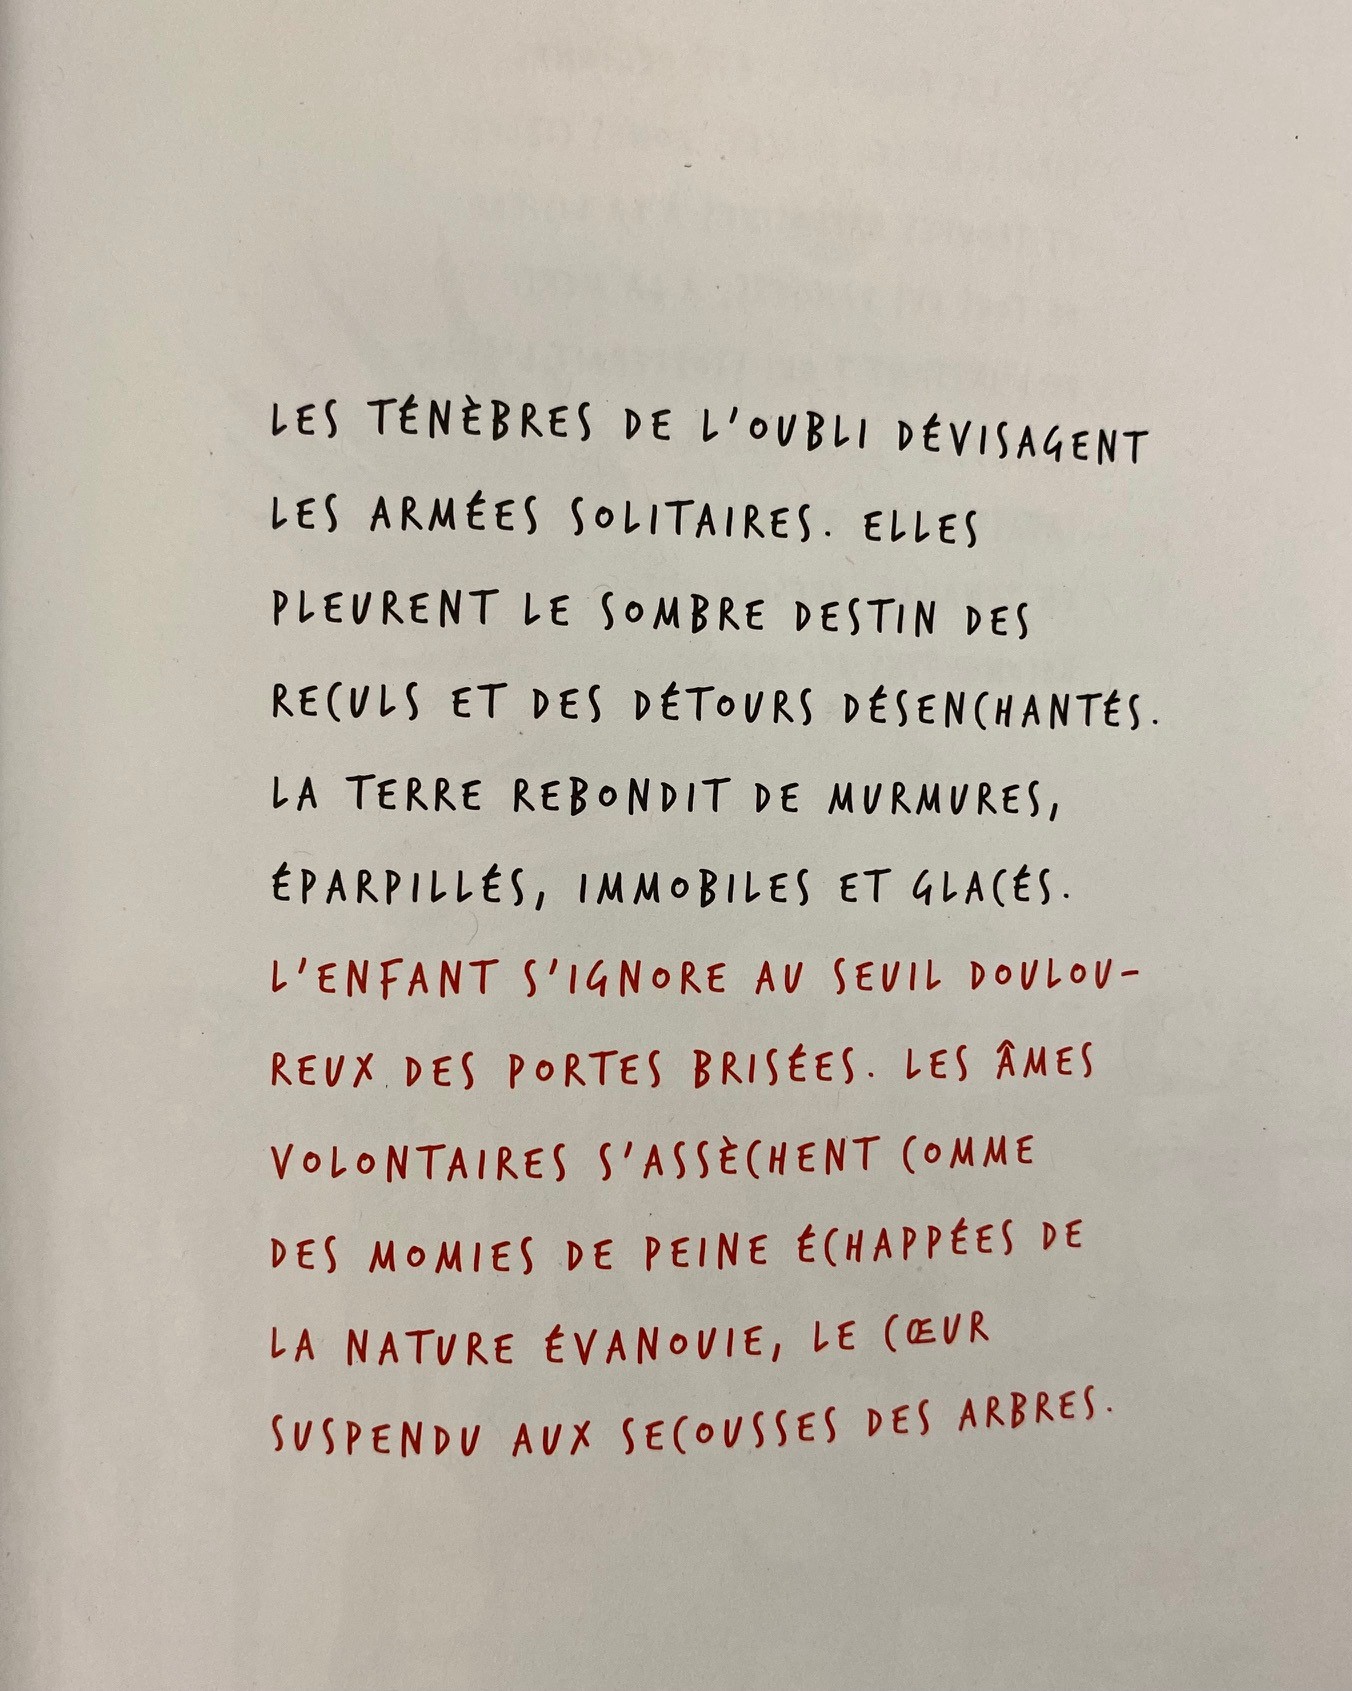 LES TÉNÈBRES DE L'OUBLI DÉVISAGENT
LES ARMÉES SOLITAIRES. ELLES
PLEURENT LE SOMBRE DESTIN DES
RECULS ET DES DÉTOURS DÉSENCHANTÉS.
LA TERRE REBONDIT DE MURMURES,
ÉPARPILLÉS, IMMOBILES ET GLACÉS.
L'ENFANT S'IGNORE AU SEUIL DOULOU-
REUX DES PORTES BRISÉES. LES ÂMES
VOLONTAIRES S'ASSÈCHENT COMME
DES MOMIES DE PEINE ÉCHAPPÉES DE
LA NATURE ÉVANOUIE, LE CŒUR
SUSPENDU AUX SECOUSSES DES ARBRES.